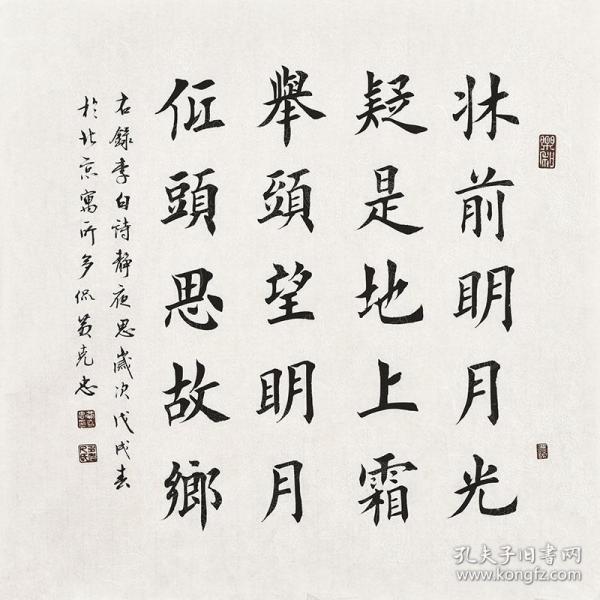 牀前明月光
疑是地上霜
舉頭望明月
低頭思故鄉
右錄李白詩靜夜思歲次戊戌春
於北京寓所多侃黃克忠
孔夫子旧书网
www.kongfz.com